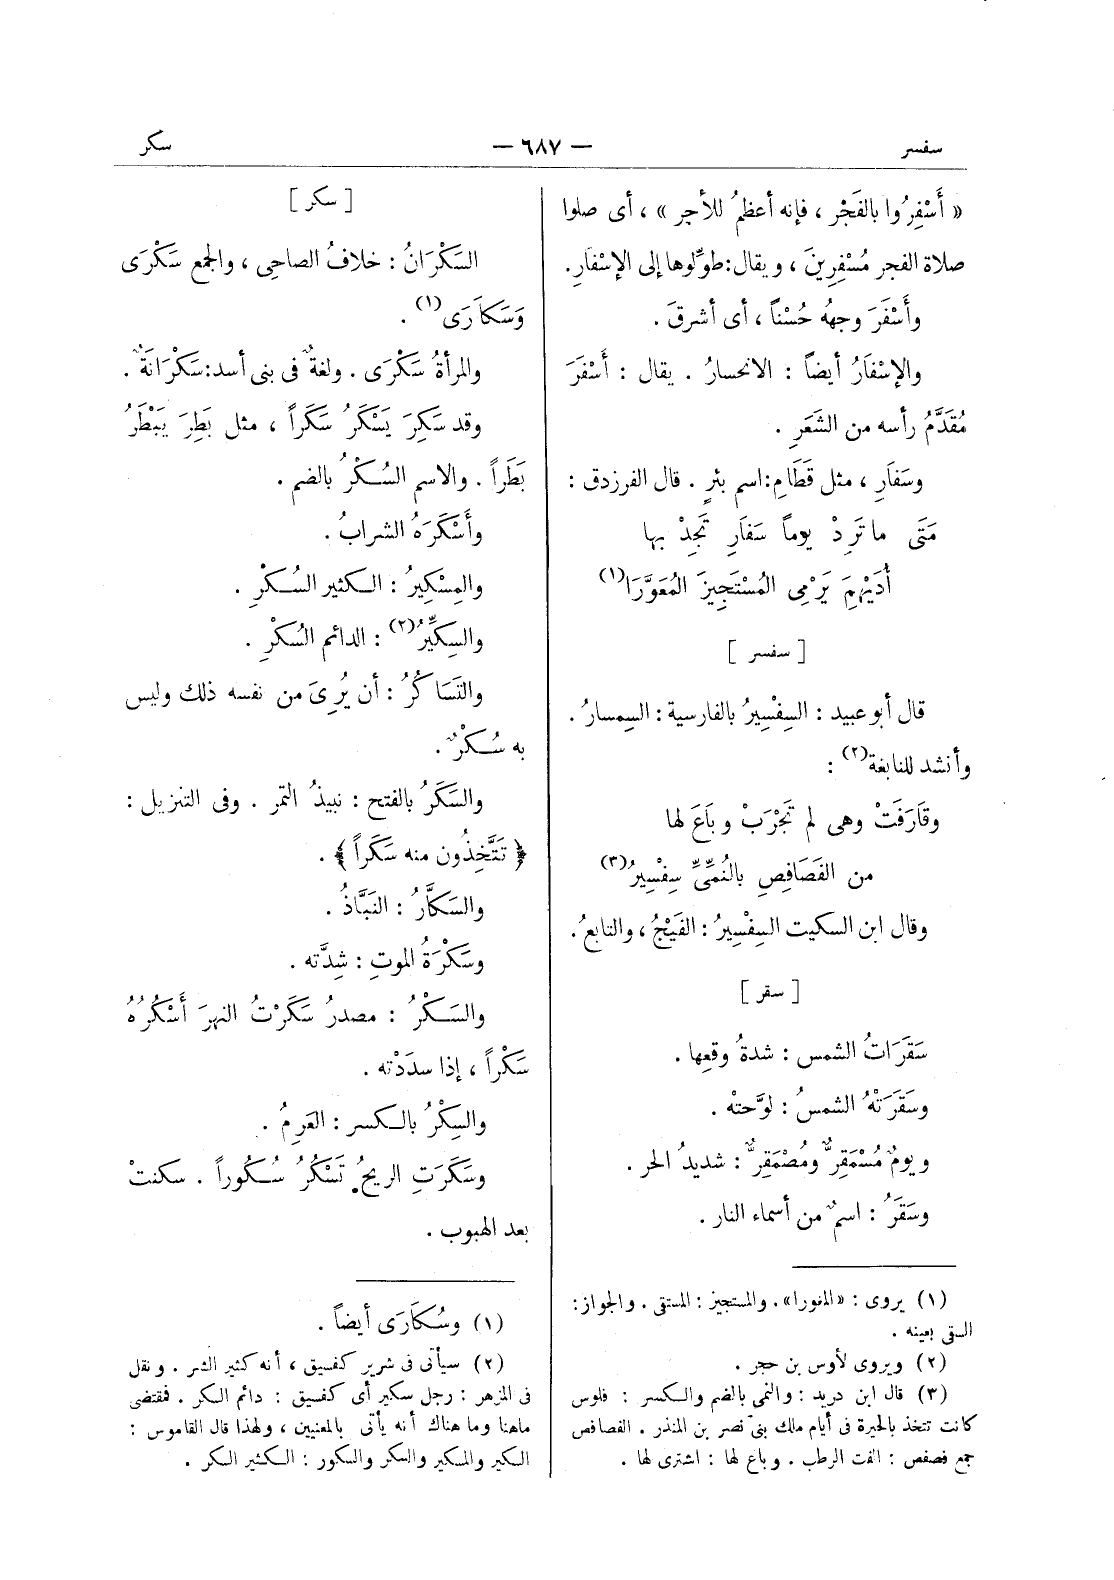 سفسر — ٦٨٧ — سكر
« أَسْفِرُوا بالفَجْر ، فإنه أعظمُ للأجر » ، أى صلوا
صلاة الفجر مُسْفِرِينَ ، ويقال: طوِّلوها إلى الإسْفَارِ.
وأَسْفَرَ وجههُ حُسْناً ، أى أشرقَ .
والإسْفَارُ أيضاً : الانحسارُ . يقال : أَسْفَرَ
مُقَدَّمُ رأسه من الشَعَرِ .
وسَفَارِ ، مثل قَطَامِ: اسم بئرٍ . قال الفرزدق :
مَتَى ما تَرِدْ يوماً سَفَارِ تَجِدْ بها
أُدَيْهِمَ يَرْمِى المُسْتَجِيزَ المُعَوَّرَا(١)
[ سفسر ]
قال أبو عبيد : السِفْسِيرُ بالفارسية : السِمسارُ .
وأنشد للنابغة(٢) :
وقَارَفَتْ وهى لم تَجْرَبْ وبَاعَ لها
من الفَصَافِصِ بالنُمِّىِّ سِفْسِيرُ(٣)
وقال ابن السكيت السِفْسِيرُ : الفَيْجُ ، والتابعُ .
[ سقر ]
سَقَرَاتُ الشمس : شدةُ وقعِها .
وسَقَرَتْهُ الشمسُ : لوَّحتْه .
ويومٌ مُسْمَقِرٌّ ومُصْمَقِرٌّ : شديدُ الحر .
وسَقَرُ : اسمٌ من أسماء النار .
(١) يروى : «المغورا» . والمستجيز : المستقى . والجواز :
السقى بعينه .
(٢) ويروى لأوس بن حجر .
(٣) قال ابن دريد : والنمى بالضم والكسر : فلوس
كانت تتخذ بالحيرة فى أيام ملك بنى نصر بن المنذر . الفصافص
جمع فصفص : القت الرطب . وباع لها : اشترى لها .
[ سكر ]
السَكْرَانُ : خلافُ الصاحِى ، والجمع سَكْرَى
وَسَكَارَى(١) .
والمرأةُ سَكْرَى . ولغةٌ فى بنى أسد: سَكْرَانَةٌ .
وقد سَكِرَ يَسْكَرُ سَكَراً ، مثل بَطِرَ يَبْطَرُ
بَطَراً . والاسم السُكْرُ بالضم .
وأَسْكَرَهُ الشرابُ .
والمِسْكِيرُ : الكثير السُكْرِ .
والسِكِّيرُ(٢) : الدائم السُكْرِ .
والتَسَاكُرُ : أن يُرِىَ من نفسه ذلك وليس
به سُكْرٌ .
والسَكَرُ بالفتح : نبيذُ التمر . وفى التنزيل :
﴿ تَتَّخِذُون منه سَكَراً ﴾ .
والسَكَّارُ : النَبَّاذُ .
وسَكْرَةُ الموتِ : شِدَّته .
والسَكْرُ : مصدرُ سَكَرْتُ النهرَ أَسْكُرُهُ
سَكْراً ، إذا سدَدْته .
والسِكْرُ بالكسر : العَرِمُ .
وسَكَرَتِ الريحُ تَسْكُرُ سُكُوراً . سكنتْ
بعد الهبوب .
(١) وسُكَارَى أيضاً .
(٢) سيأتى فى شرير كفسيق ، أنه كثير الشر . ونقل
فى المزهر : رجل سكير أى كفسيق : دائم السكر . فمقتضى
ماهنا وما هناك أنه يأتى بالمعنيين ، ولهذا قال القاموس :
السكير والمسكير والسكر والسكور : الكثير السكر .